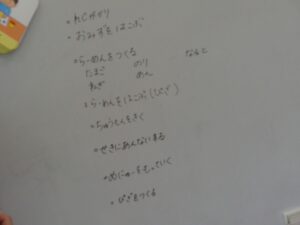 ・れじがかり
・おみずをはこぶ
・らーめんをつくる
たまご のり なると
ねぎ めん
・らーめんをはこぶ(ぴざ)
・ちゅうもんをきく
・せきにあんないする
・めにゅーをもっていく
・ぴざをつくる